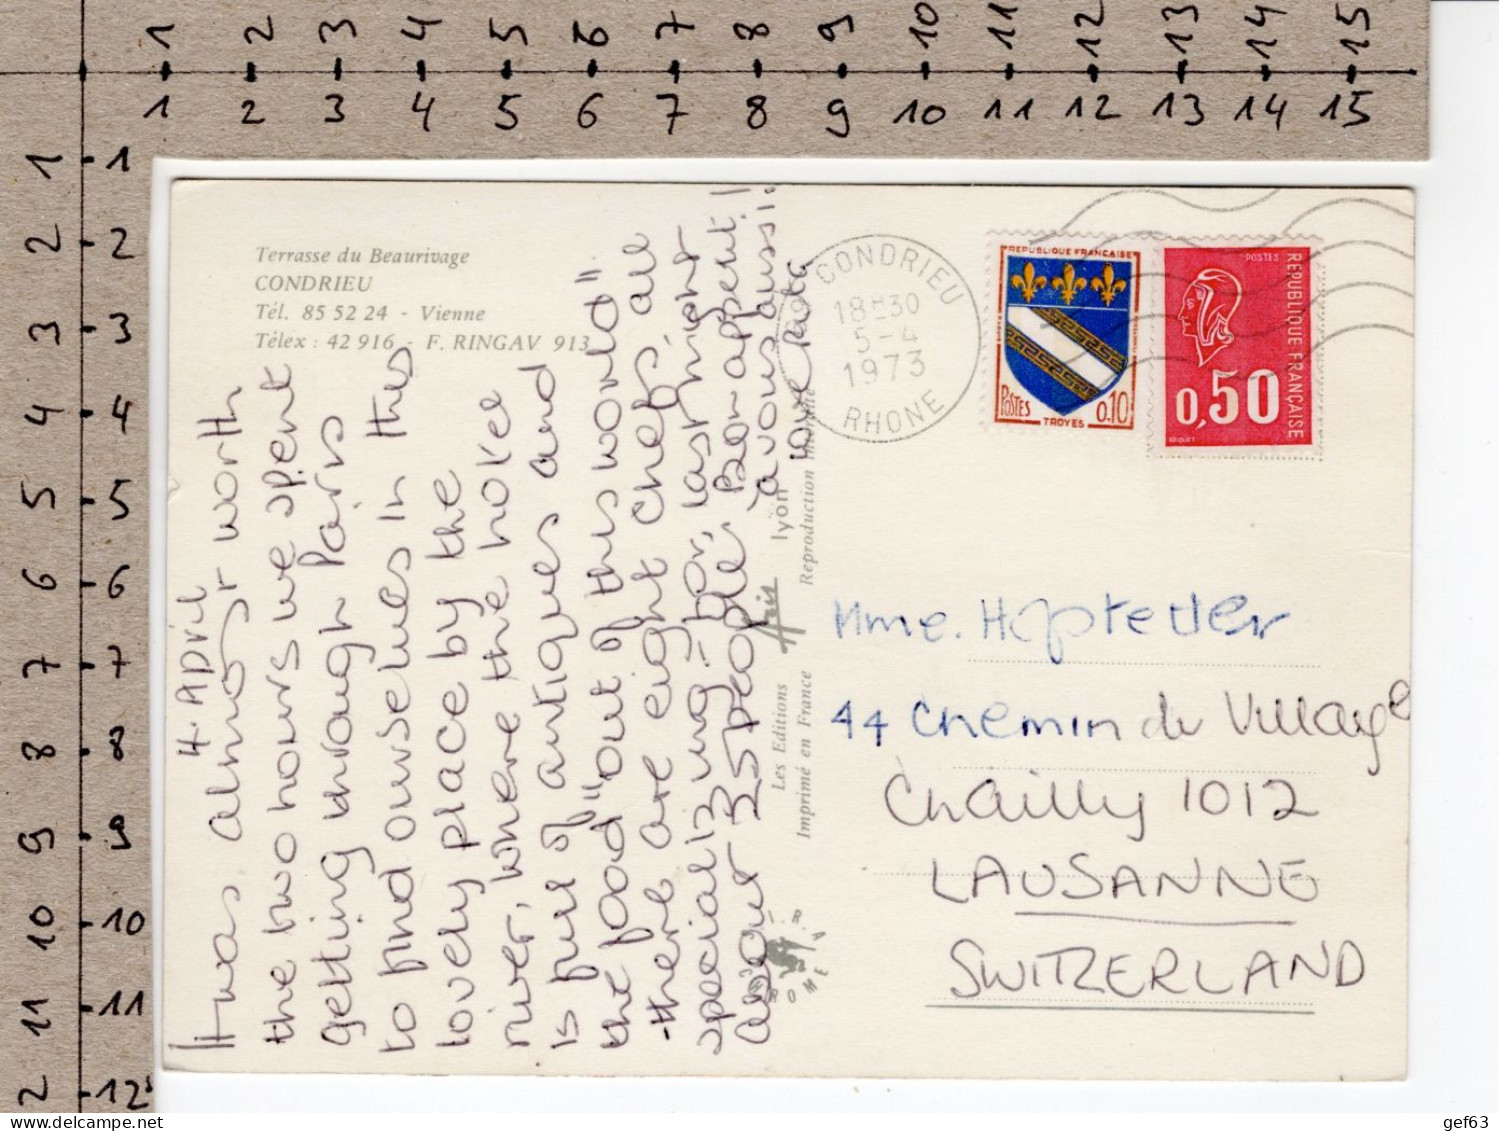 1 2 3 4 5 6 7 8 9 10 11 12 13 14 15
1 2 3 4 5 6 7 8 9 10 11 12 13 14 15
1 1
2 2
3 3
4 4
5 5
6 6
7 7
8 8
9 9
10 10
11 11
2 12
Terrasse du Beaurivage
CONDRIEU
Tél. 85 52 24 - Vienne
Télex : 42 916 - F. RINGAV 913
4. April
It was almost worth
the two hours we spent
getting through Paris
to find ourselves in this
lovely place by the
river, where the hotel
is full of antiques and
the food "out of this world"
there are eight chefs, all
specializing - for, last night
about 35 people! Bon appetit!
à vous aussi.
love
Les Editions
lyon
Imprimé en France
Reproduction interdite
C.I.R.A
ROME
CONDRIEU
18H30
5-4
1973
RHONE
REPUBLIQUE FRANCAISE
POSTES
0.10
TROYES
POSTES
REPUBLIQUE FRANÇAISE
0,50
BEQUET
Mme. Hofstetter
44 Chemin du Village
Chailly 1012
LAUSANNE
SWITZERLAND
gef63